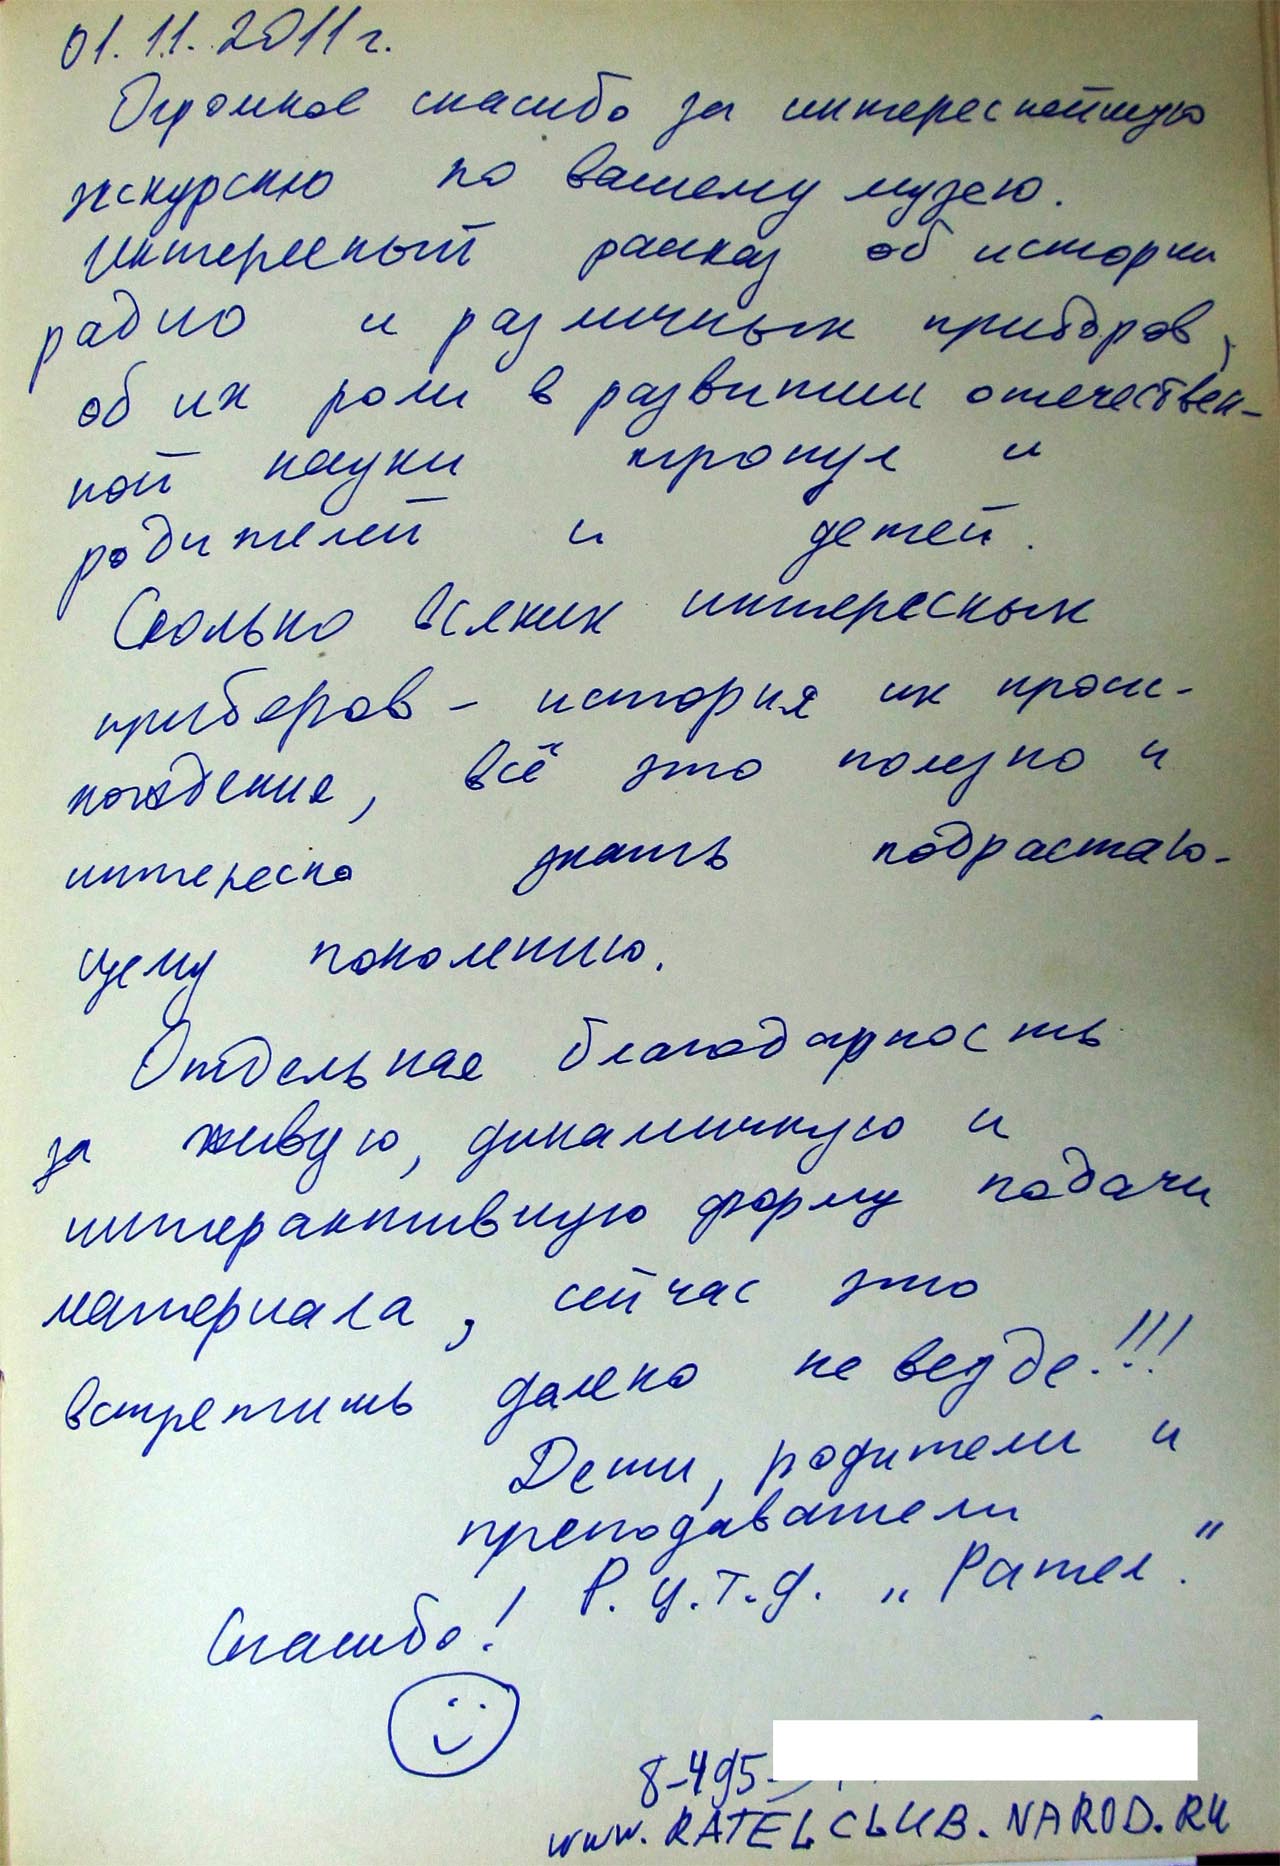 01.11.2011 г.
Огромное спасибо за интереснейшую
экскурсию по вашему музею.
Интересный рассказ об истории
радио и различных приборов,
об их роли в развитии отечествен-
ной науки тронул и
родителей и детей.
Сколько всяких интересных
приборов - история их проис-
хождения, всё это полезно и
интересно знать подрастаю-
щему поколению.
Отдельная благодарность
за живую, динамичную и
интерактивную форму подачи
материала, сейчас это
встретишь далеко не везде!!!
Дети, родители и
преподаватели
Р.Ц.Т.Д. „Рател".
Спасибо!
8-495-
www.RATELCLUB.NAROD.RU